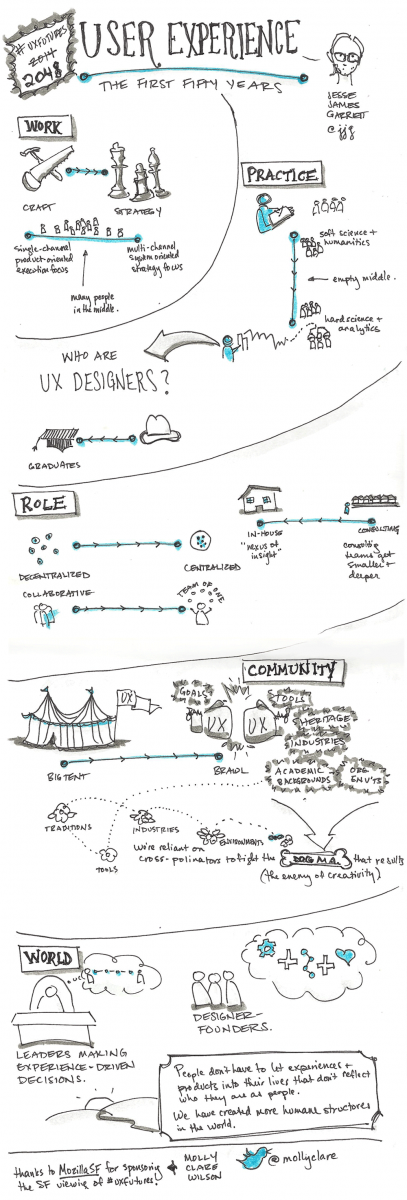 # UXFUTURES
2014
2048
USER EXPERIENCE
THE FIRST FIFTY YEARS
JESSE
JAMES
GARRETT
@jjg
WORK
CRAFT
STRATEGY
single-channel
product-oriented
execution focus
multi-channel
system oriented
strategy focus
many people
in the middle.
PRACTICE
soft science +
humanities
empty middle.
hard science +
analytics
WHO ARE
UX DESIGNERS?
GRADUATES
ROLE
DECENTRALIZED
CENTRALIZED
COLLABORATIVE
TEAM OF ONE
IN-HOUSE
"nexus of
insight"
CONSULTING
consulting
teams get
smaller +
deeper
COMMUNITY
UX
GOALS
UX
UX
TOOLS
HERITAGE
INDUSTRIES
ACADEMIC
BACKGROUNDS
ORG
ENV'TS
BIG TENT
BRAWL
TRADITIONS
TOOLS
INDUSTRIES
ENVIRONMENTS
We're reliant on
cross-polinators to fight the DOGMA that results
(the enemy of creativity)
WORLD
LEADERS MAKING
EXPERIENCE-DRIVEN
DECISIONS.
DESIGNER-
FOUNDERS.
People don't have to let experiences +
products into their lives that don't reflect
who they are as people.
We have created more humane structures
in the world.
thanks to MozillaSF for sponsoring
the SF viewing of #uxfutures!
MOLLY
CLARE
WILSON
@mollyclare